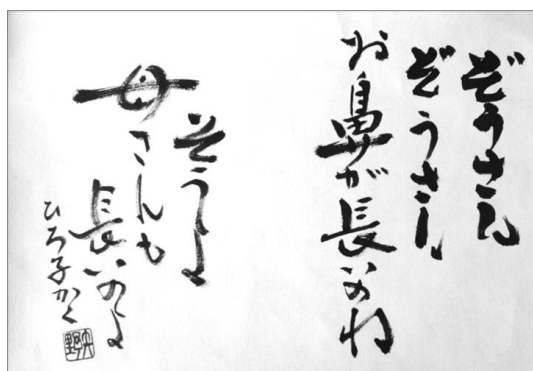 ぞうさん
ぞうさん
お鼻が長いのね
そうよ
母さんも
長いのよ
ひろ子かく